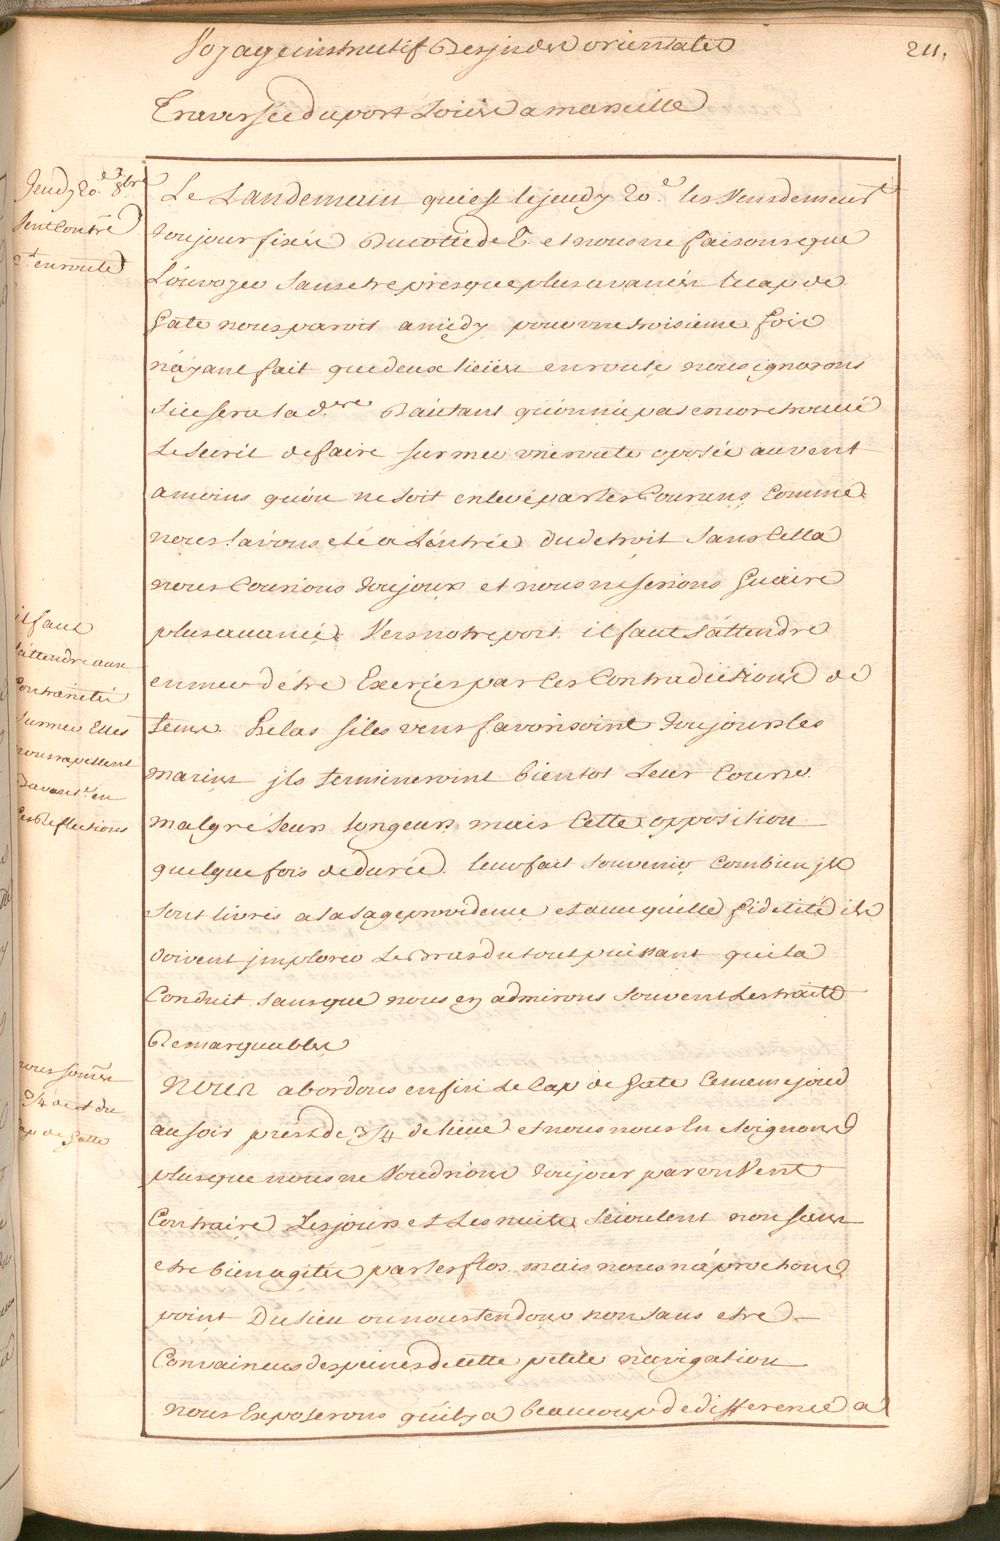 Voyage instructif Des jndes orientales
211.
Traversée du port Loüis a marseille
Jeudy 20.e 8.bre
Vent Contre
et en route
Le Landemain qui est le jeudy 20.e les Vens demeurt
toujour fixés Du cotté de E. et nous ne faisons que
Louvoyer sans etre presque plus avancés le cap de
Gate nous paroit a midy pour une troisieme fois
n'áyant fait que deux lieües en route nous ignorons
si ce sera la d.ere D'autant qu'on n'a pas encore trouvé
Le secrit de faire sur mer une route oposée au vent
a moins qu'on ne soit enlevé par les Courans Comme
nous l'avons eté a L'entrée du detroit sans Cella
nous Courions toujours et nous ne serions Guaire
plus avancés Vers notre port. il faut s'attendre
en mer d'étre Exercés par Les Contradictions de
tems. helas si les vens favorisoint toujours les
marins jls termineroint bientot Leur Course
malgré leurs longeurs mais Cette opposition
quelque fois de durée leur fait souvenir Combien jls
sont livrés a la sage providence et avec quelle fidelité ils
doivent jmplorer Le Bras du tout puissant qui la
Conduit sans que nous en admirons souvent Les traits
Remarquables
il faut
s'attendre aux
Contrarietés
sur mer Elles
nous rapellent
Davant.e en
Ces Reflections
Nous abordons enfin Le Cap de Gate Ce meme jour
au soir prest de 3/4 de lieue et nous nous En eloignons
plus que nous ne Voudrions toujour par un Vent
Contraire Les jours et Les nuits s'écoulent non sans
etre bien agités par les flos mais nous n'áprochons
point Du lieu ou nous tendons non sans etre
Convaincus des peines de cette petite navigation
nous Exposerons qu'il y a beaucoup de difference a
nous sommes
3/4 de l. du
Cap de Gatte